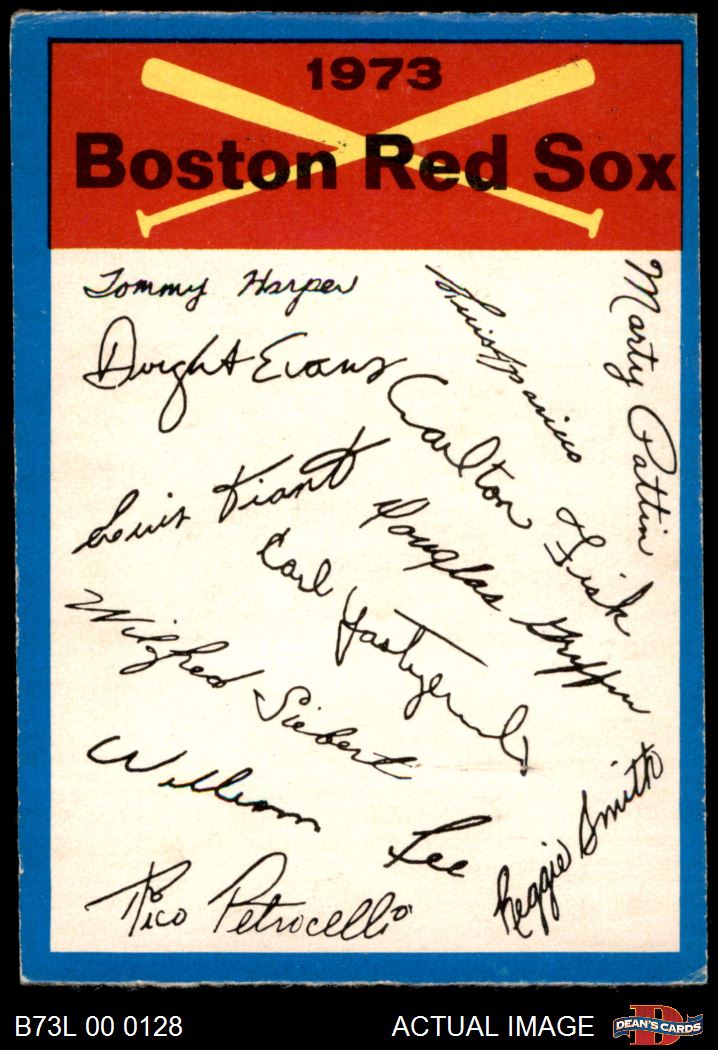 1973
Boston Red Sox
Tommy Harper
Luis Aparicio
Marty Pattin
Dwight Evans
Carlton Fisk
Luis Tiant
Douglas Griffin
Carl Yastrzemski
Wilfred Siebert
William Lee
Reggie Smith
Rico Petrocelli
B73L 00 0128
ACTUAL IMAGE
D
DEAN'S CARDS